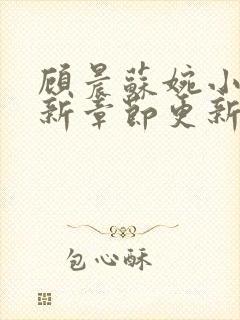 顾晨蘇婉小
新章節更新
包心酥